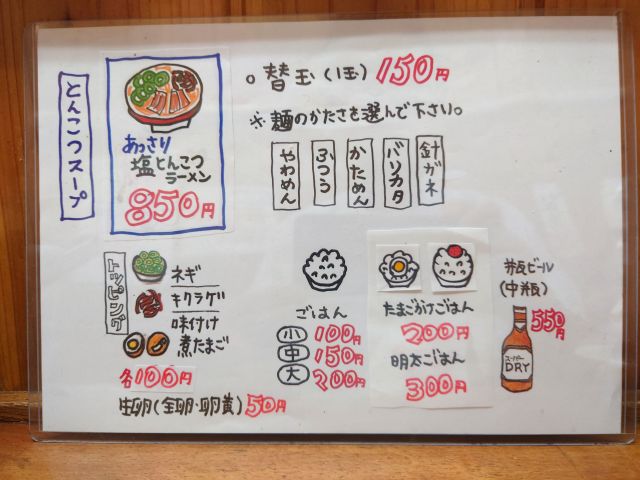 とんこつスープ
あっさり
塩とんこつ
ラーメン
850円
。替玉(1玉)150円
※麺のかたさを選んで下さい。
やわめん
ふつう
かためん
バリカタ
針ガネ
トッピング
ネギ
キクラゲ
味付け
煮たまご
各100円
生卵(全卵・卵黄)50円
ごはん
小 100円
中 150円
大 200円
たまごかけごはん
200円
明太ごはん
300円
瓶ビール
(中瓶)
550円
スーパー
DRY